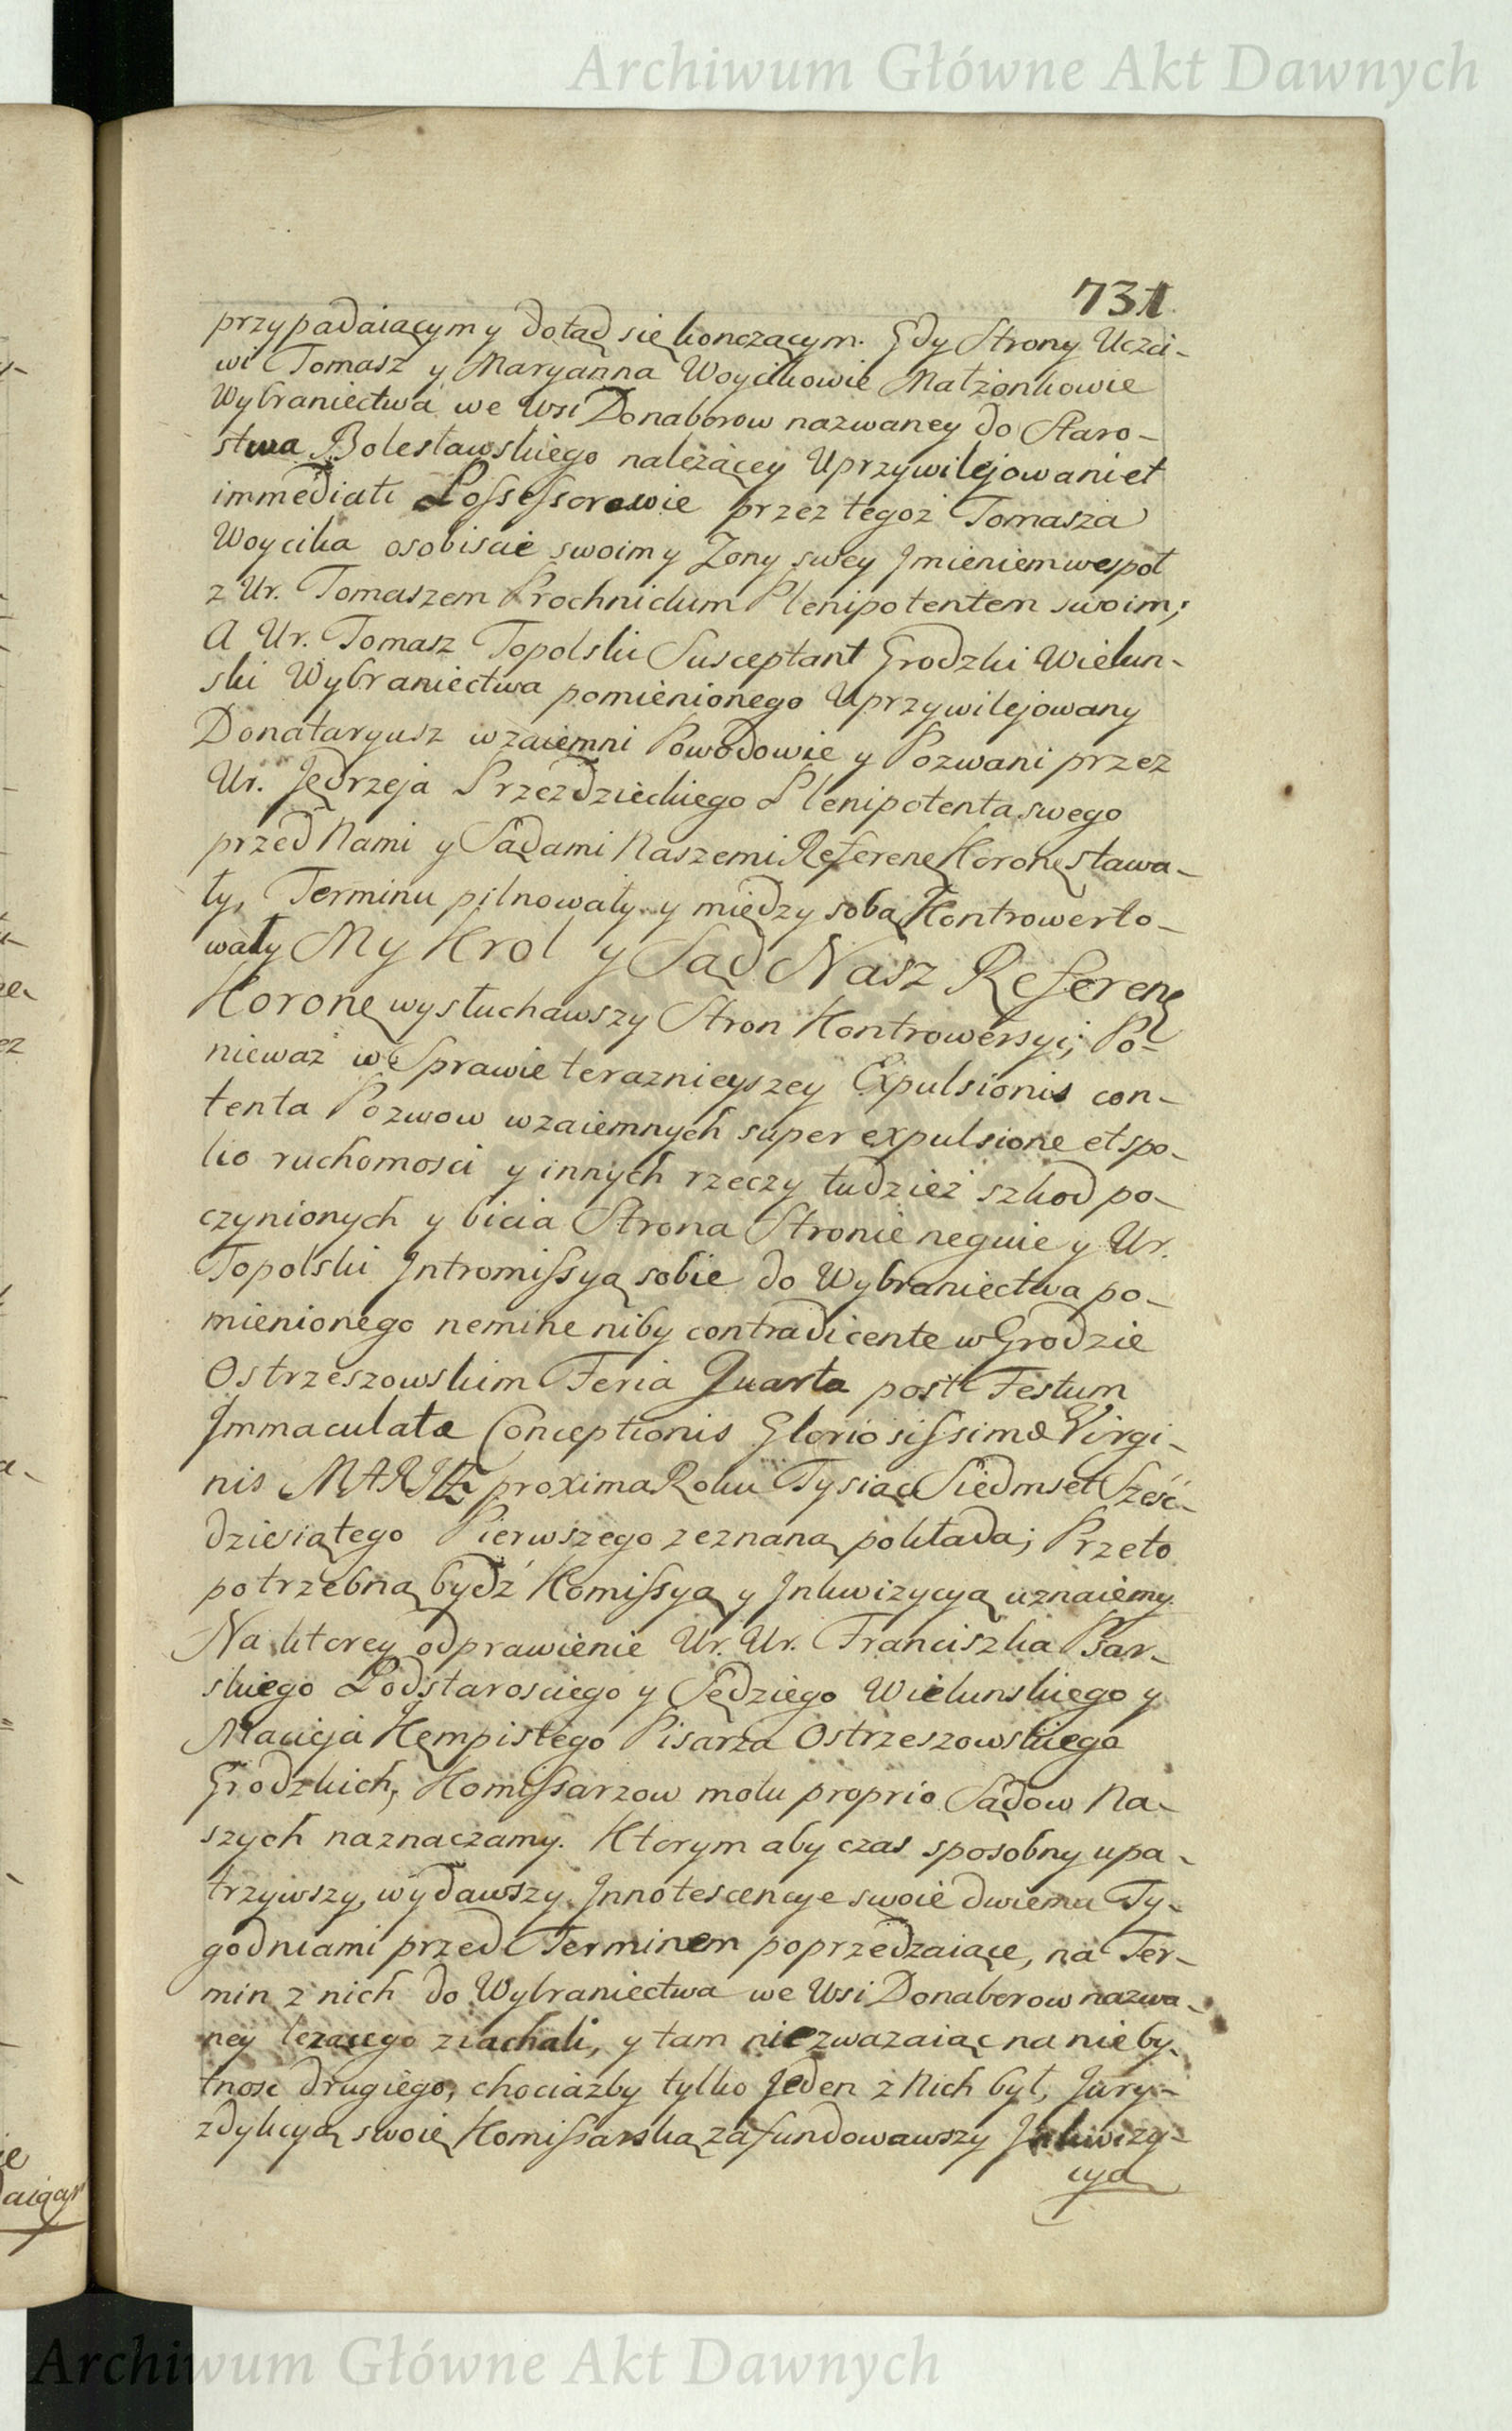 Archiwum Główne Akt Dawnych
731
przypadaiącym y dotąd się konczącym. Gdy Strony Uczci-
wi Tomasz y Maryanna Woycikowie Małżonkowie
Wybraniectwa we Wsi Donaborow nazwaney do Staro-
stwa Bolesławskiego należącey Uprzywilejowani et
immediati Possessorowie przez tegoż Tomasza
Woycika osobiscie swoim y Zony swey Jmieniem wespoł
z Ur. Tomaszem Prochnickim Plenipotentem swoim;
A Ur. Tomasz Topolski Susceptant Grodzki Wielun-
ski Wybraniectwa pomienionego Uprzywilejowany
Donataryusz wzaiemni Powodowie y Pozwani przez
Ur. Jędrzeja Przezdzieckiego Plenipotenta swego
przed Nami y Sądami Naszemi Referen: Koron: stawa-
ły, Terminu pilnowały y między sobą Kontrowerto-
wały My Krol y Sąd Nasz Referen:
Koron: wysłuchawszy Stron Kontrowersyi; Po-
nieważ w Sprawie teraznieyszey Expulsionis con-
tenta Pozwow wzaiemnych super expulsione et spo-
lio ruchomosci y innych rzeczy tudzież szkod po-
czynionych y bicia Strona Stronie neguie y Ur.
Topolski Jntromissyą sobie do Wybraniectwa po-
mienionego nemine niby contradicente w Grodzie
Ostrzeszowskim Feria Quarta post Festum
Jmmaculatæ Conceptionis Gloriosissimæ Virgi-
nis MARIÆ proxima Roku Tysiąc Siedmset Sześć-
dziesiątego Pierwszego zeznaną pokłada; Przeto
potrzebną bydź Komissyą y Jnkwizycyą uznaiemy.
Na ktorey odprawienie Ur. Ur. Franciszka Psar-
skiego Podstarosciego y Sędziego Wielunskiego y
Macieja Kempistego Pisarza Ostrzeszowskiego
Grodzkich, Komissarzow motu proprio Sądow Na-
szych naznaczamy. Ktorym aby czas sposobny upa-
trzywszy, wydawszy Jnnotescencye swoie dwiema Ty-
godniami przed Terminem poprzedzaiące, na Ter-
min z nich do Wybraniectwa we Wsi Donaborow nazwa-
ney leżącego ziachali, y tam niezwazaiąc na nieby-
tnosc drugiego, chociażby tylko Jeden z Nich był, Jury-
zdykcyą swoię Komissarską zafundowawszy Jnkwizy-
cyą
Archiwum Główne Akt Dawnych